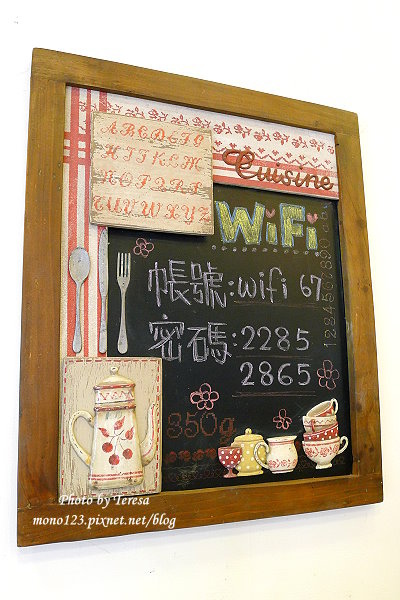 ABCDEFG
HIJKLM
NOPQRST
UVWXYZ
Cuisine
WiFi
帳號:wifi 67
密碼:2285
2865
350g
Photo by Teresa
mono123.pixnet.net/blog